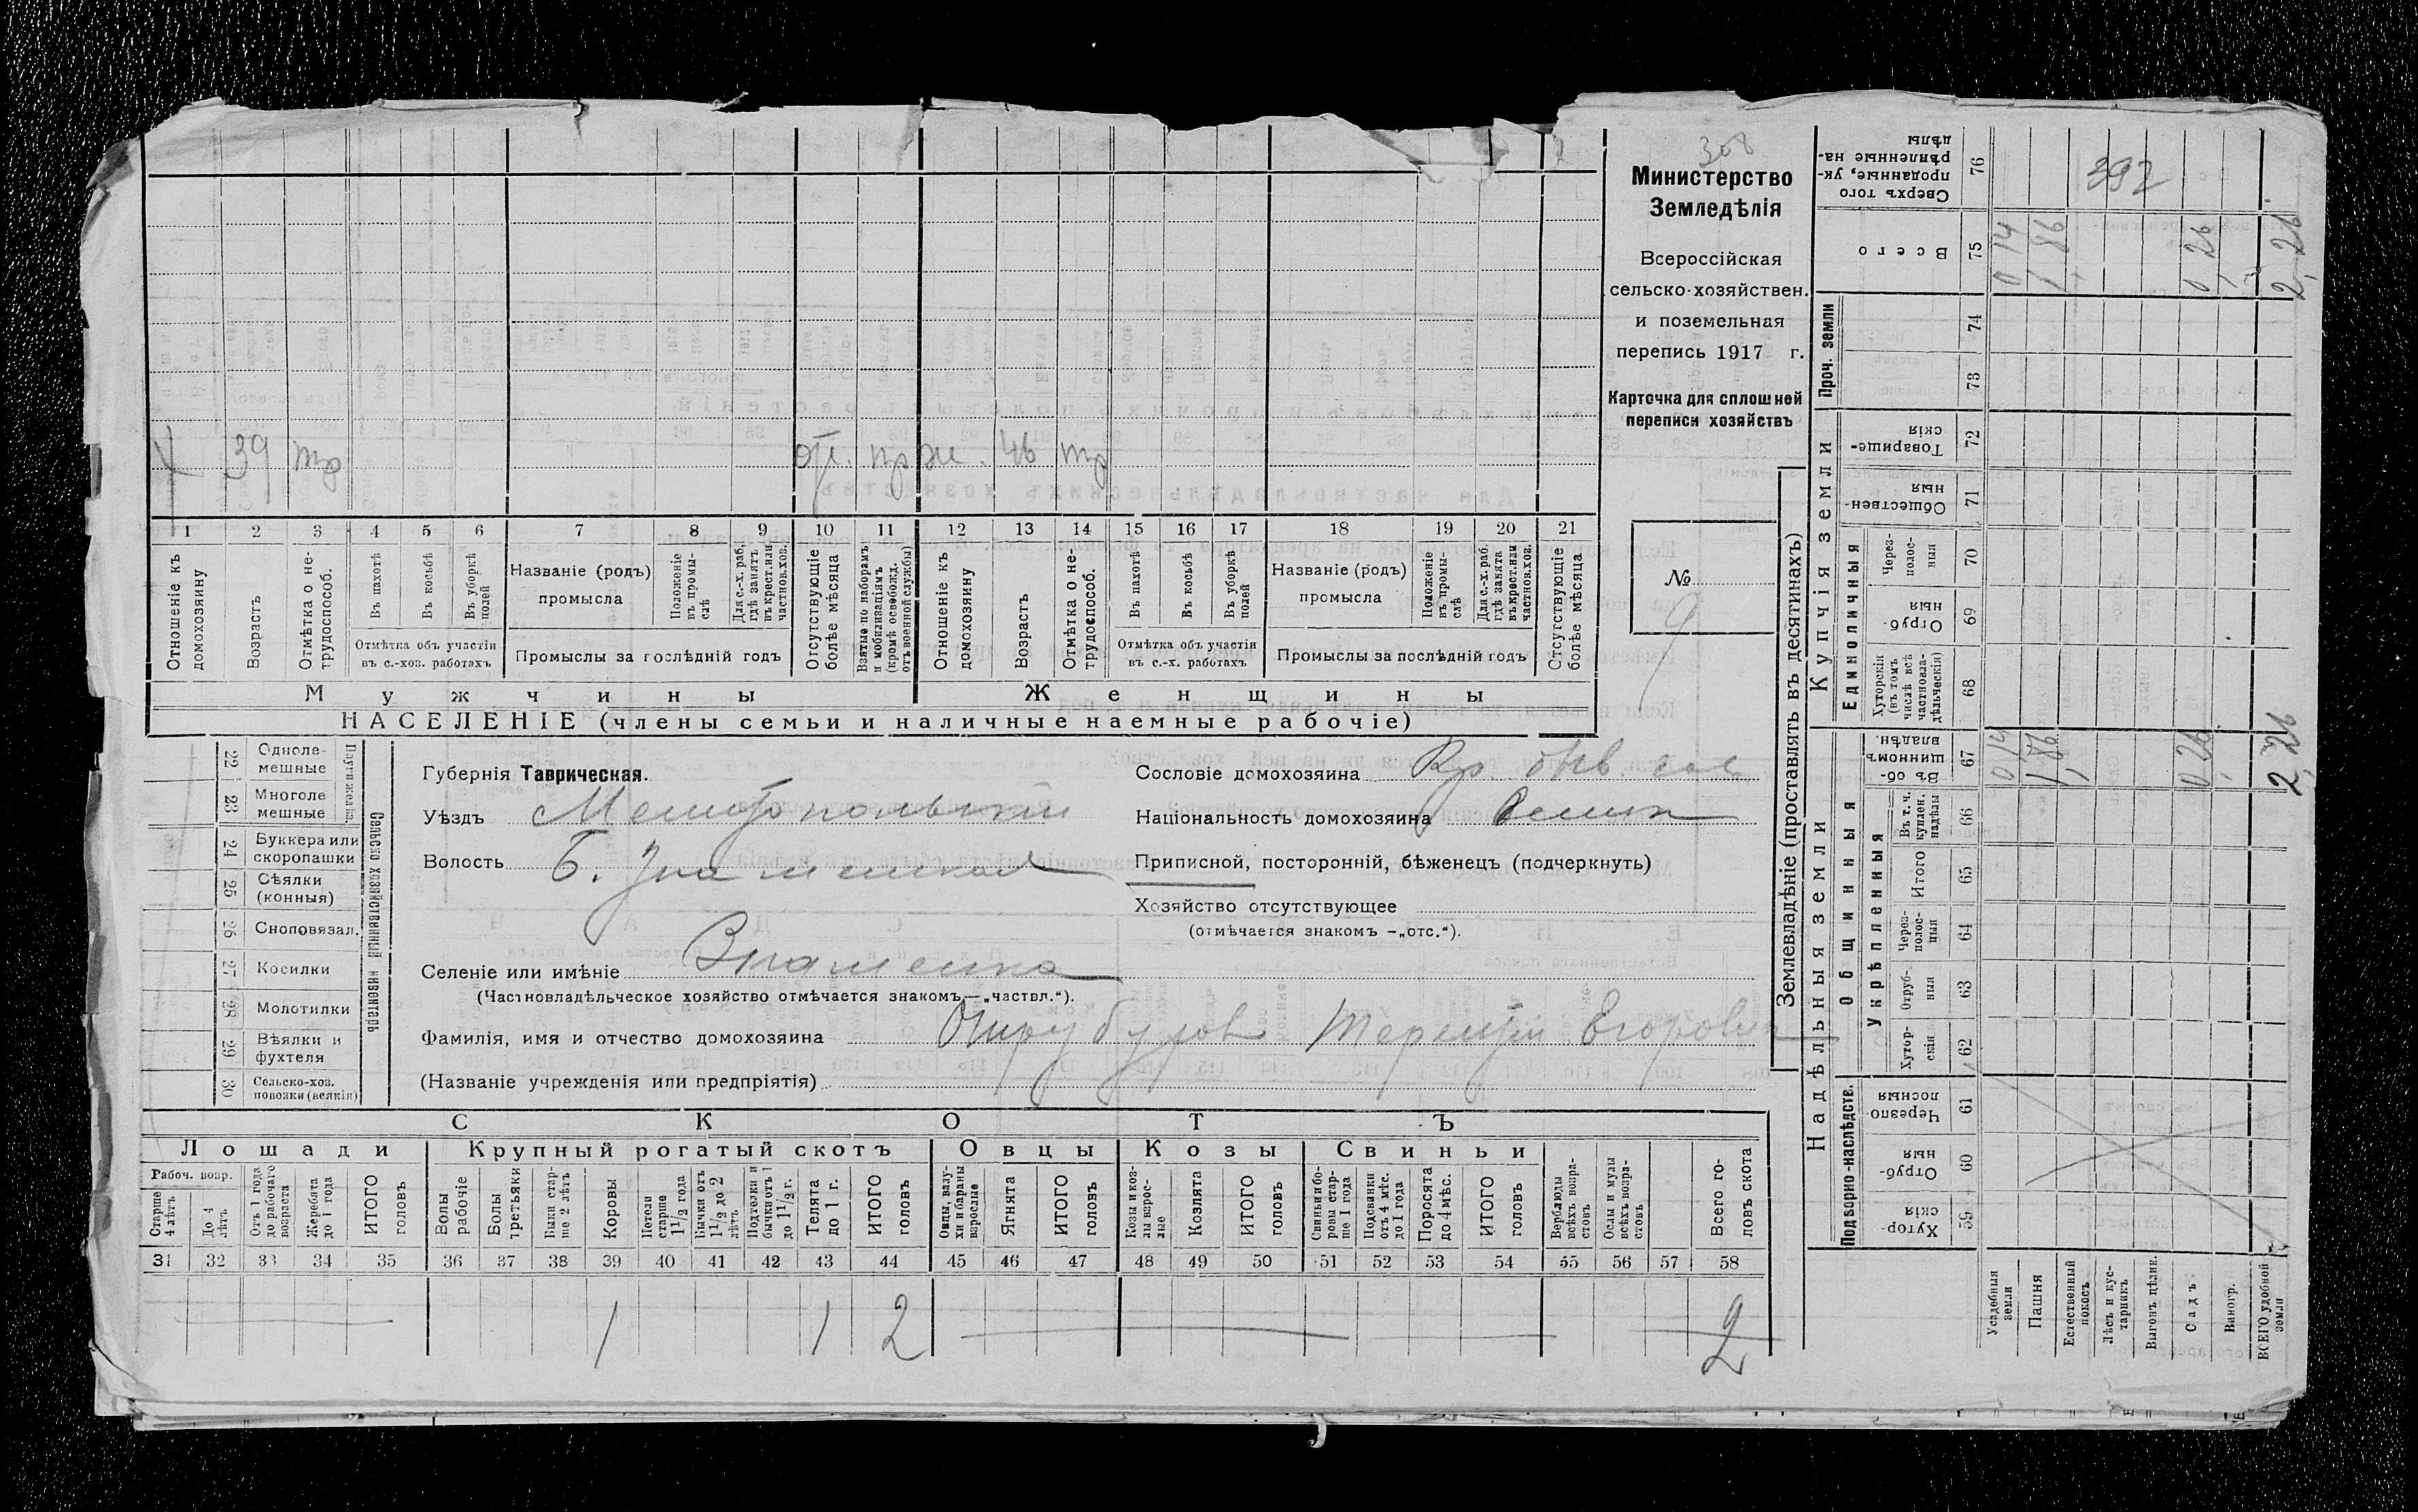 308
Министерство
Земледѣлія
Всероссійская
сельско-хозяйствен.
и поземельная
перепись 1917 г.
Карточка для сплошней
переписи хозяйствъ
№
9
39 отп. ж. 46
1 2 3 4 5 6 7 8 9 10 11 12 13 14 15 16 17 18 19 20 21
Отношеніе къ домохозяину
Возрастъ
Отмѣтка о не-трудоспособ.
Въ пахотѣ
Въ косьбѣ
Въ уборкѣ полей
Отмѣтка объ участіи въ с.-хоз. работахъ
Названіе (родъ) промысла
Положеніе въ промы-слѣ
Для с.-х. раб. гдѣ занятъ въ крест. или частнов. хоз.
Промыслы за послѣдній годъ
Отсутствующіе болѣе мѣсяца
Взятые по наборамъ и мобилизаціямъ (кромѣ освобожд. отъ военной службы)
Отношеніе къ домохозяину
Возрастъ
Отмѣтка о не-трудоспособ.
Въ пахотѣ
Въ косьбѣ
Въ уборкѣ полей
Отмѣтка объ участіи въ с.-х. работахъ
Названіе (родъ) промысла
Положеніе въ промы-слѣ
Для с.-х. раб. гдѣ занята въ крест. или частнов. хоз.
Промыслы за послѣдній годъ
Отсутствующіе болѣе мѣсяца
Мужчины Женщины
НАСЕЛЕНІЕ (члены семьи и наличные наемные рабочіе)
22 Одноле-мешные
23 Многоле мешные
Плуги желѣз.
24 Буккера или скоропашки
25 Сѣялки (конныя)
26 Сноповязал.
27 Косилки
28 Молотилки
29 Вѣялки и фухтеля
30 Сельско-хоз. повозки (велкія)
Сельско хозяйственный инвентарь
Губернія Таврическая.
Уѣздъ Мелитопольскій
Волость Б. Знаменская
Селеніе или имѣніе Знаменка
(Частновладѣльческое хозяйство отмѣчается знакомъ—„частвл.“).
Фамилія, имя и отчество домохозяина Терентій Егорович
(Названіе учрежденія или предпріятія)
Сословіе домохозяина Кр. быв.
Національность домохозяина
Приписной, посторонній, бѣженецъ (подчеркнуть)
Хозяйство отсутствующее
(отмѣчается знакомъ —„отс.“).
СКОТЪ
Лошади Крупный рогатый скотъ Овцы Козы Свиньи
Рабоч. возр.
Старше 4 лѣтъ
До 4 лѣтъ
Отъ 1 года до рабочаго возраста
Жеребята до 1 года
ИТОГО головъ
Волы рабочіе
Волы третьяки
Быки стар-ше 2 лѣтъ
Коровы
Нетели старше 1 1/2 года
Бычки отъ 1 1/2 до 2 лѣтъ
Подтелки и бычки отъ 1 до 1 1/2 г.
Телята до 1 г.
ИТОГО головъ
Овцы, валу-хи и бараны взрослые
Ягнята
ИТОГО головъ
Козы и коз-лы взрос-лые
Козлята
ИТОГО головъ
Свиньи и бо-ровы стар-ше 1 года
Подсвинки отъ 4 мѣс. до 1 года
Поросята до 4 мѣс.
ИТОГО головъ
Верблюды всѣхъ возра-стовъ
Ослы и мулы всѣхъ возра-стовъ
Всего го-ловъ скота
31 32 33 34 35 36 37 38 39 40 41 42 43 44 45 46 47 48 49 50 51 52 53 54 55 56 57 58
1 1 2 2
Землевладѣніе (проставлять въ десятинахъ)
Надѣльныя земли Купчія земли Проч. земли
Подворно-наслѣдств. Общинныя Единоличныя
Укрѣпленныя
Сверхъ того проданные, ук-рѣпленные на-дѣлы 76 392
Всего 75 0 14 1 86 0,26 2,26
74
73
Товарище-скія 72
Обществен-ныя 71
Через-полос-ныя 70
Отруб-ныя 69
Хуторскія (въ томъ числѣ всѣ частновла-дѣльческія) 68
Въ об-щинномъ владѣн. 67 0,14 1,86 0,26 2,26
Въ т. ч. куплен. надѣлы 66
Итого 65
Через-полос-ныя 64
Отруб-ныя 63
Хутор-скія 62
Черезпо-лосныя 61
Отруб-ныя 60
Хутор-скія 59
Усадебныя земли
Пашня
Естественный покосъ
Лѣсъ и кус-тарникъ
Выгонъ цѣлик.
Садъ
Виногр.
ВСЕГО удобной земли